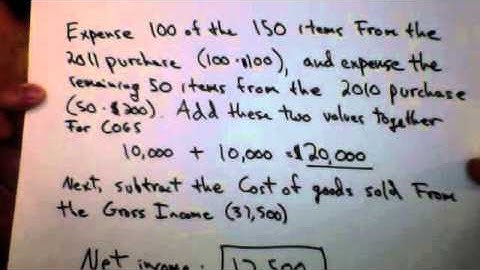 Expense 100 of the 150 items From the
2011 purchase (100·$100), and expense the
remaining 50 items from the 2010 purchase
(50·$200). Add these two values together
For COGS
10,000 + 10,000 = $20,000
Next, subtract the Cost of goods sold From
the Gross Income (37,500)
Net income: 17,500